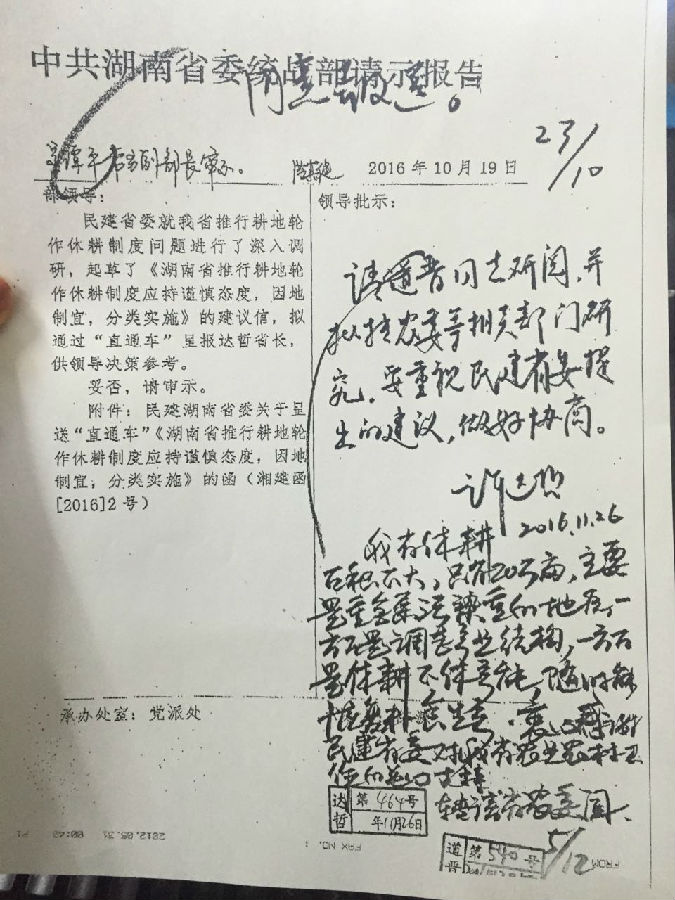 中共湖南省委统战部请示报告
同意报送。
23/10
2016年10月19日
部领导：
民建省委就我省推行耕地轮
作休耕制度问题进行了深入调
研，起草了《湖南省推行耕地轮
作休耕制度应持谨慎态度，因地
制宜，分类实施》的建议信，拟
通过“直通车”呈报达哲省长，
供领导决策参考。
妥否，请审示。
附件：民建湖南省委关于呈
送“直通车”《湖南省推行耕地轮
作休耕制度应持谨慎态度，因地
制宜，分类实施》的函（湘建函
[2016]2号）
承办处室：党派处
领导批示：
请道晋同志研阅，并
拟转农委等相关部门研
究，要重视民建省委提
出的建议，做好协商。
许达哲
2016.11.26
我省休耕
面积不大，只有20万亩，主要
是重金属污染重的地区，一
方面是调整产业结构，一方面
是休耕不休产能，随时能
恢复粮食生产，衷心感谢
民建省委对我省农业农村工
作的关心支持
转请省农委阅、
5/12
达哲
第464号
年11月26日
道晋
第540号
2012.05.31 00:40
P1
FAX NO. :
FROM